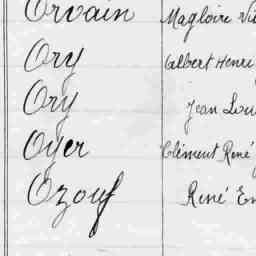 Orvain Magloire
Ory Albert Henri
Ory Jean
Oyer Clément René
Ozouf René